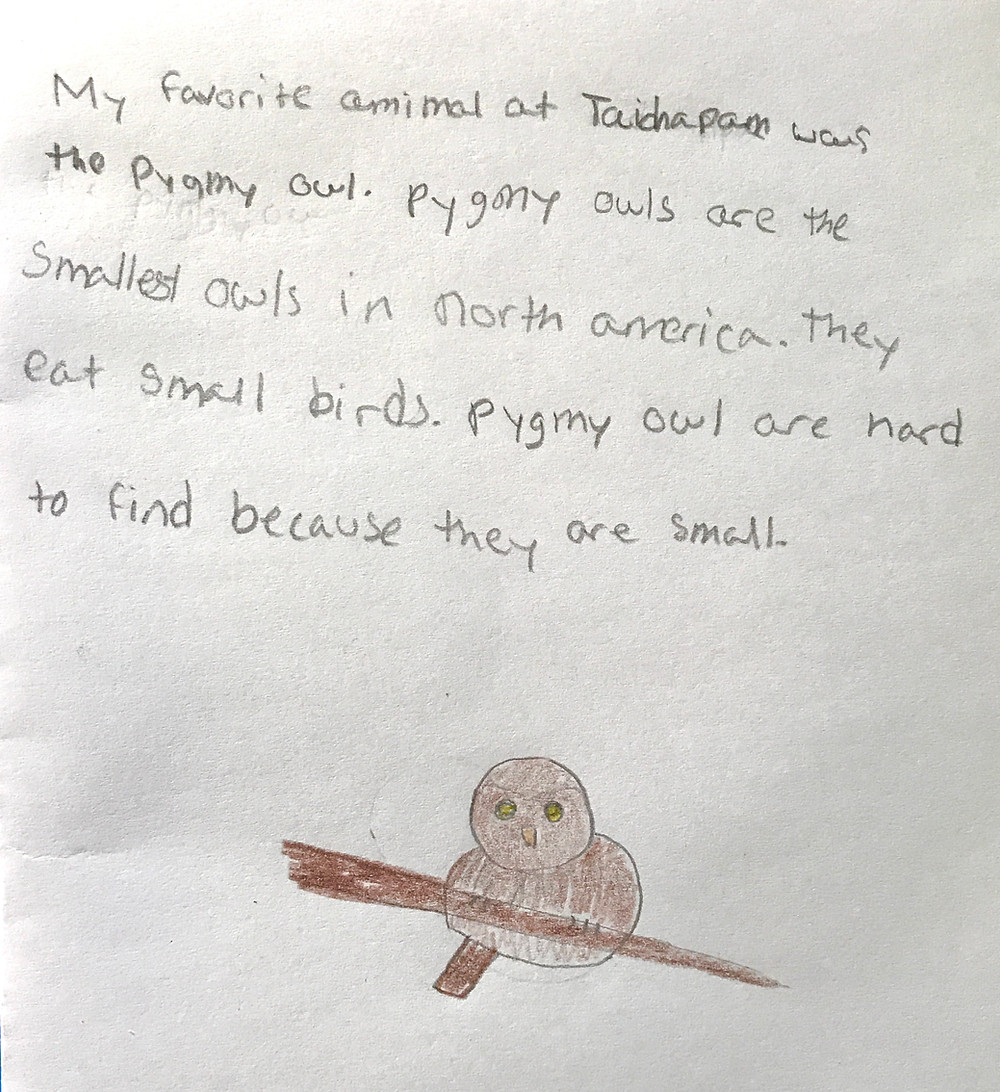 My favorite amimal at Taidnapam was
the Pygmy owl. Pygmy owls are the
Smallest owls in north america. they
eat small birds. Pygmy owl are hard
to find because they are small.